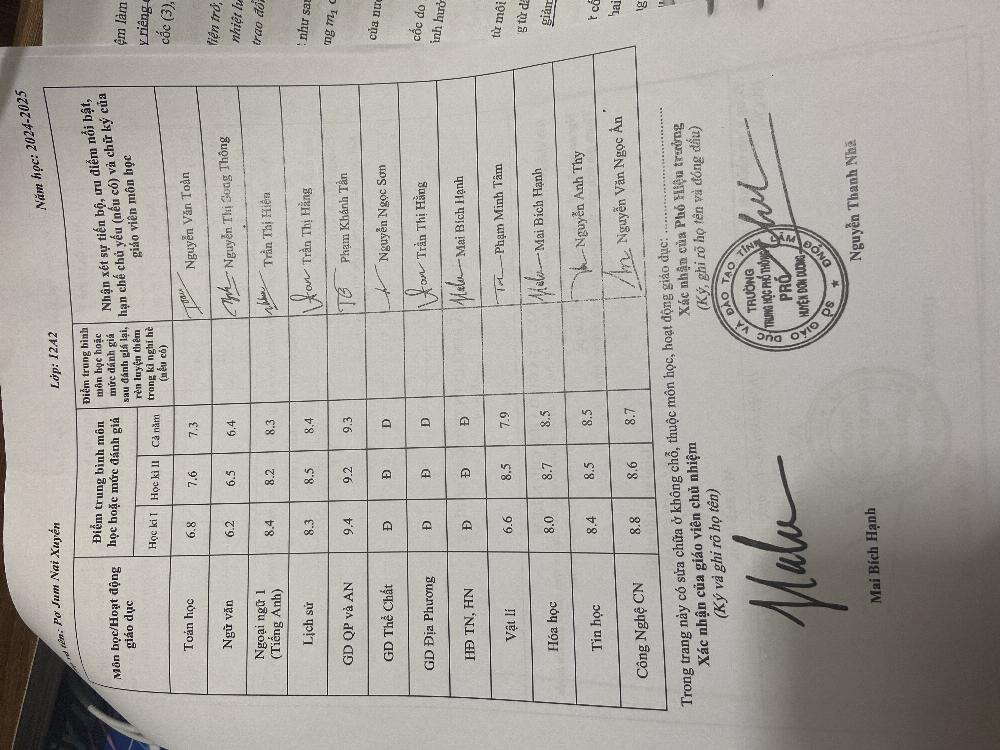 Năm học: 2024-2025
và tên: Pơ Jum Nai Xuyến Lớp: 12A2
Môn học/Hoạt động giáo dục
Điểm trung bình môn học hoặc mức đánh giá
Học kì I Học kì II Cả năm
Điểm trung bình môn học hoặc mức đánh giá sau đánh giá lại, rèn luyện thêm trong kì nghỉ hè (nếu có)
Nhận xét sự tiến bộ, ưu điểm nổi bật, hạn chế chủ yếu (nếu có) và chữ ký của giáo viên môn học
Toán học 6.8 7.6 7.3 Nguyễn Văn Toàn
Ngữ văn 6.2 6.5 6.4 Nguyễn Thị Song Thông
Ngoại ngữ 1 (Tiếng Anh) 8.4 8.2 8.3 Trần Thị Hiền
Lịch sử 8.3 8.5 8.4 Trần Thị Hằng
GD QP và AN 9.4 9.2 9.3 Phạm Khánh Tân
GD Thể Chất Đ Đ Đ Nguyễn Ngọc Sơn
GD Địa Phương Đ Đ Đ Trần Thị Hằng
HĐ TN, HN Đ Đ Đ Mai Bích Hạnh
Vật lí 6.6 8.5 7.9 Phạm Minh Tâm
Hóa học 8.0 8.7 8.5 Mai Bích Hạnh
Tin học 8.4 8.5 8.5 Nguyễn Anh Thy
Công Nghệ CN 8.8 8.6 8.7 Nguyễn Văn Ngọc Ẩn
Trong trang này có sửa chữa ở không chỗ, thuộc môn học, hoạt động giáo dục: ....................
Xác nhận của giáo viên chủ nhiệm
(Ký và ghi rõ họ tên)
Mai Bích Hạnh
Xác nhận của Phó Hiệu trưởng
(Ký, ghi rõ họ tên và đóng dấu)
SỞ GIÁO DỤC VÀ ĐÀO TẠO TỈNH LÂM ĐỒNG
TRƯỜNG
TRUNG HỌC PHỔ THÔNG
PRÓ
HUYỆN ĐƠN DƯƠNG
Nguyễn Thanh Nhã